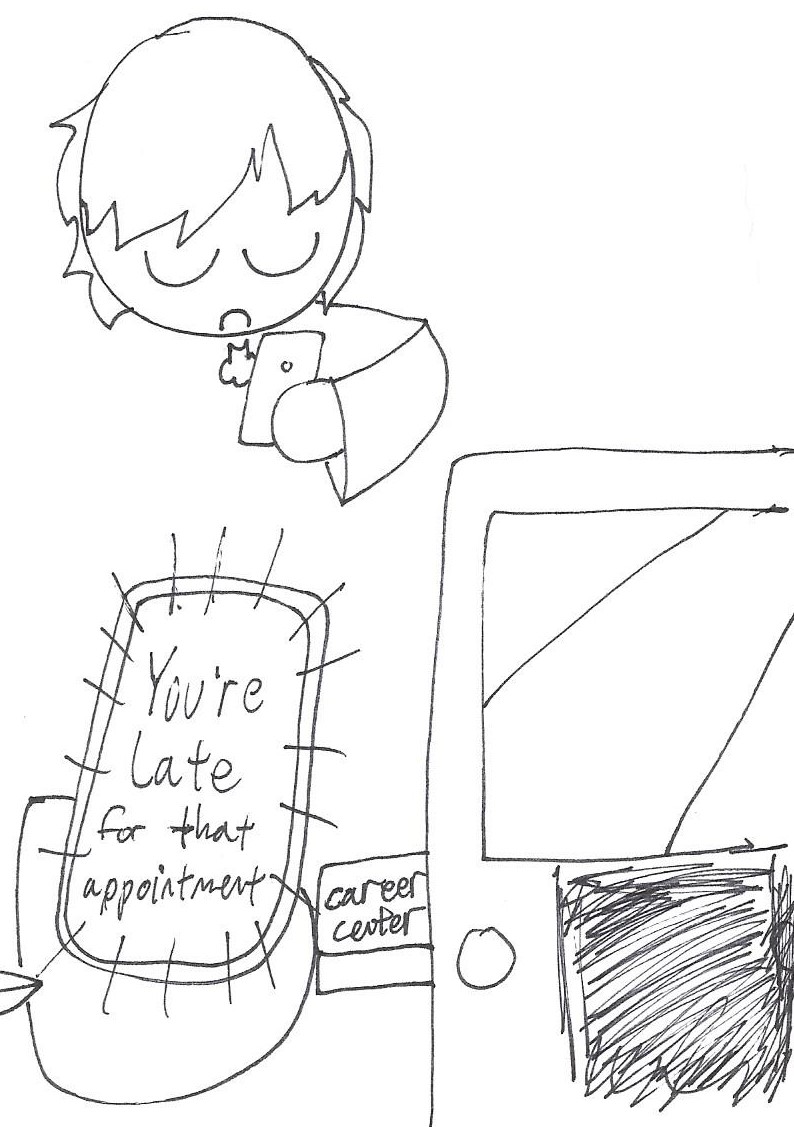 You're
Late
for that
appointment
career
center